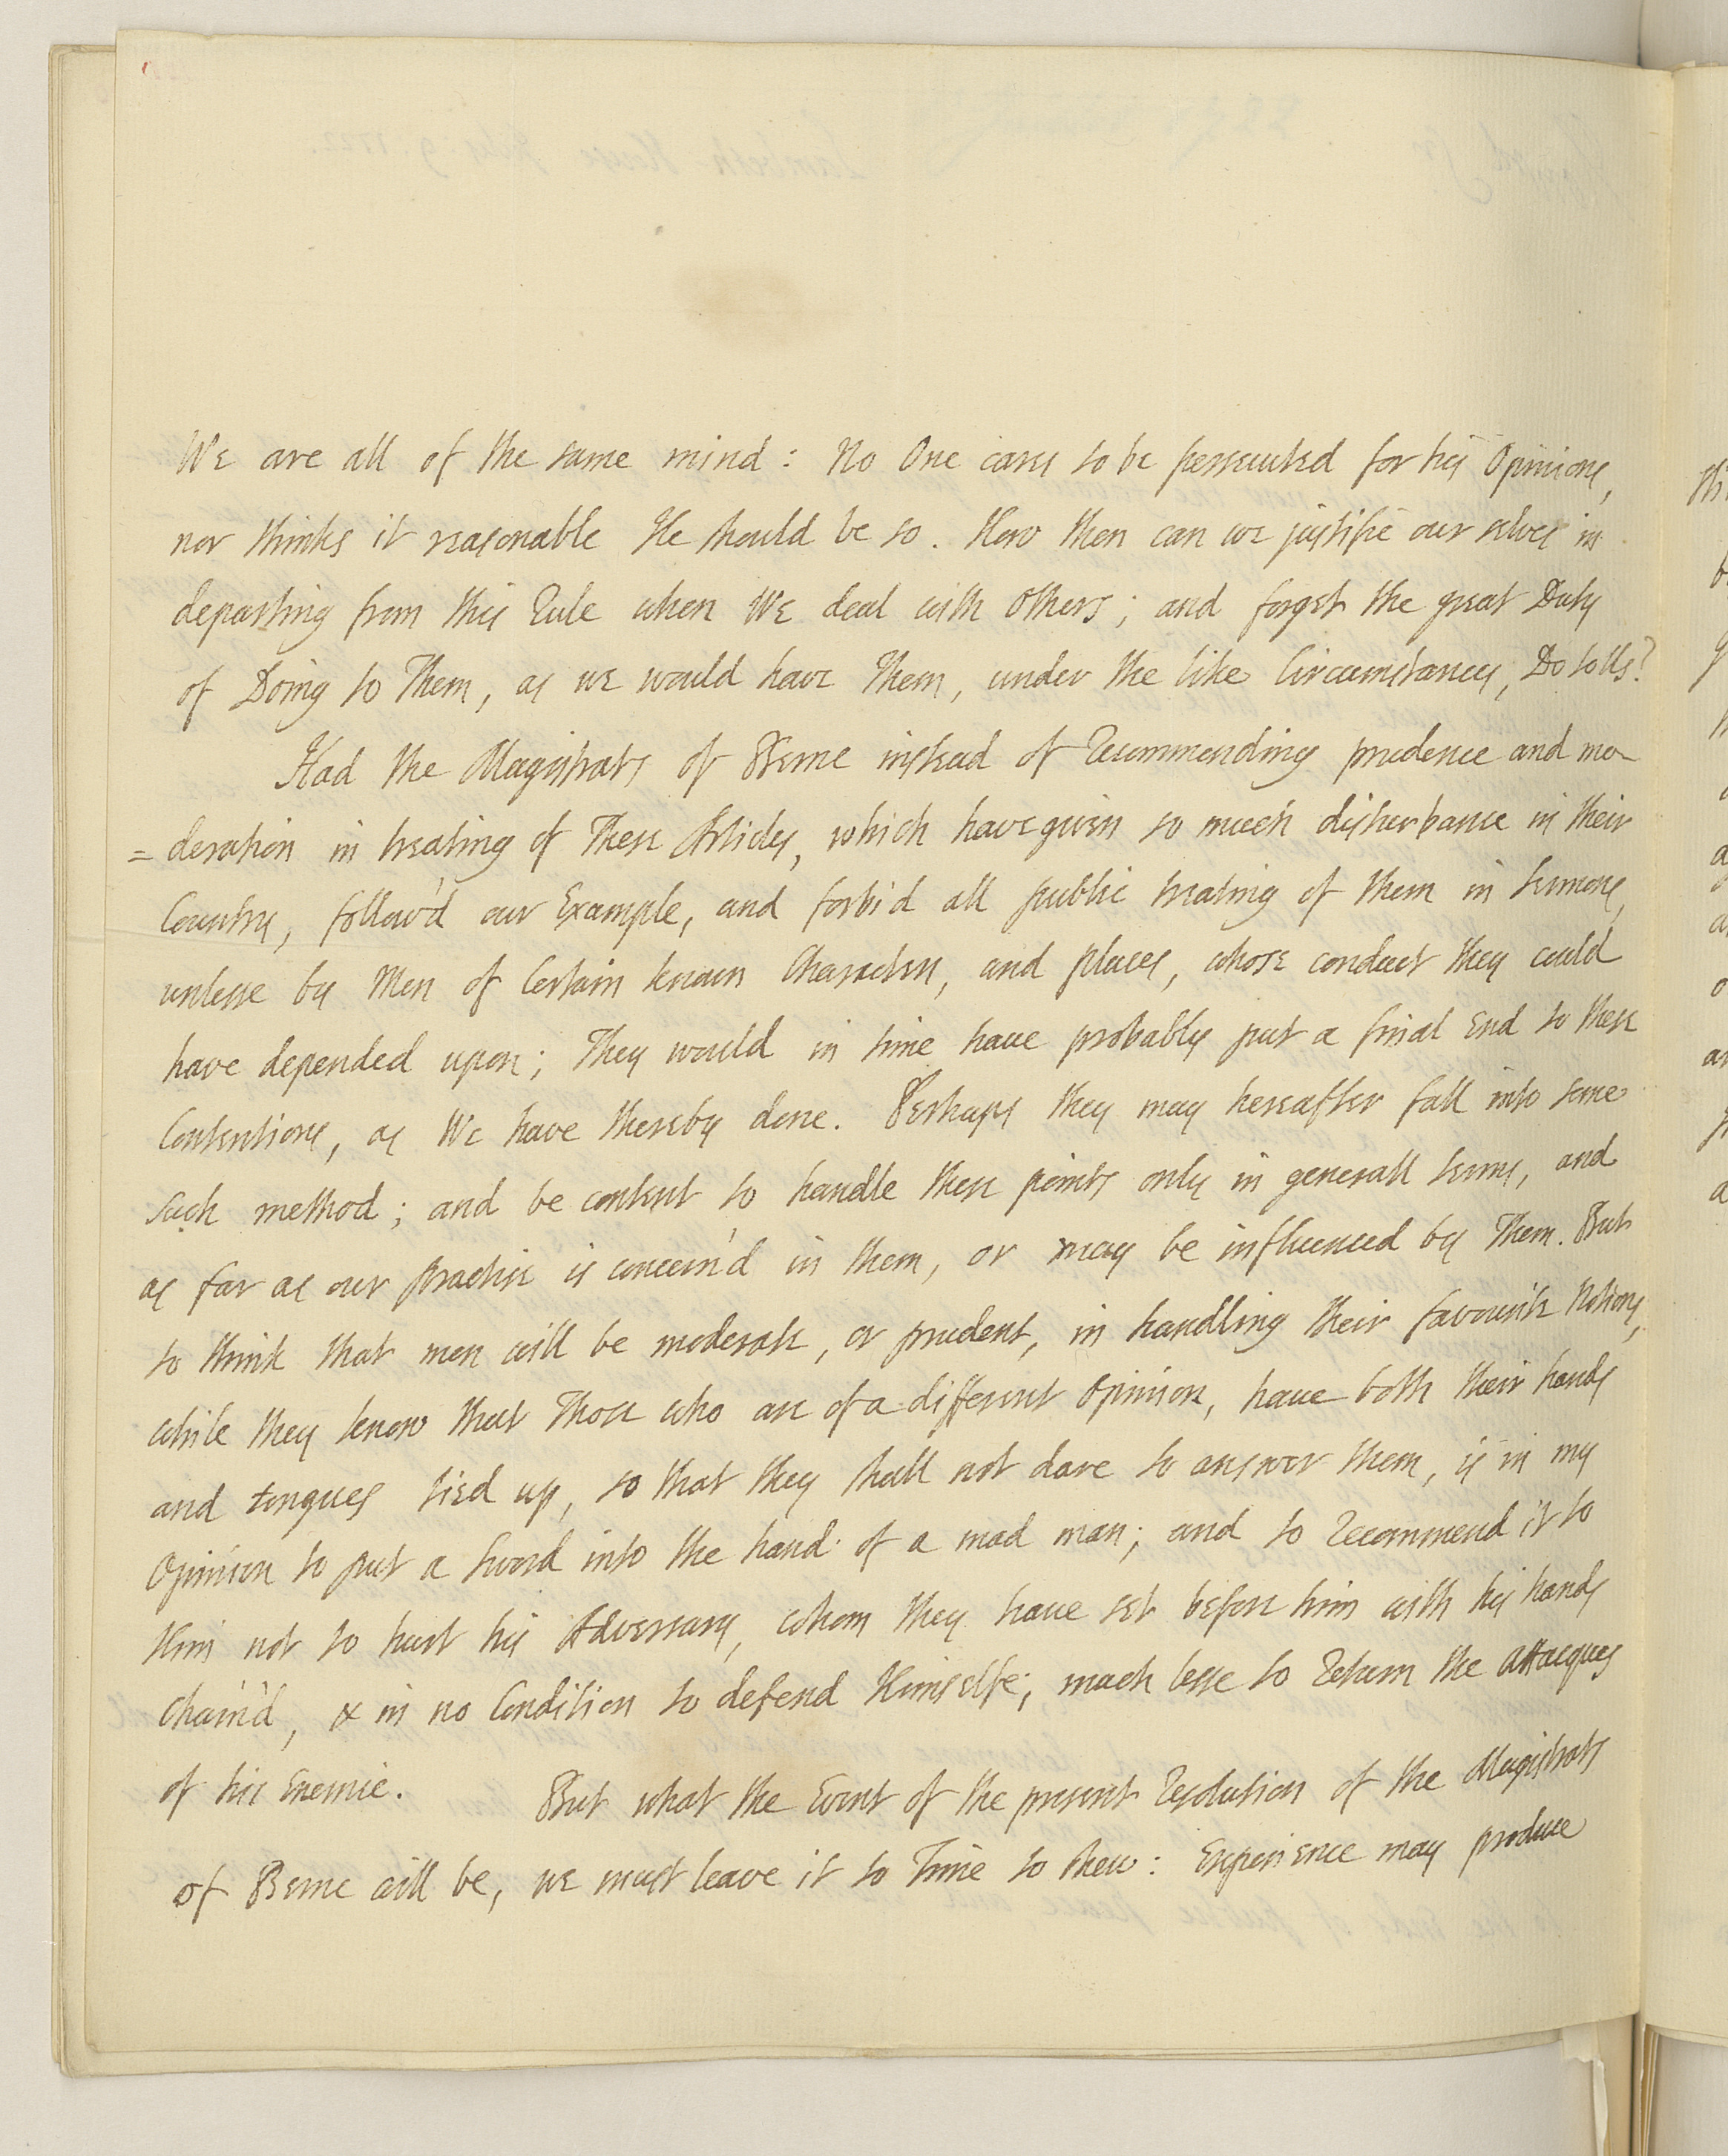 We are all of the same mind: No One cares to be persecuted for his Opinions,
nor thinks it reasonable He should be so. How then can we justifie our selves in
departing from this Rule when We deal with others; and forget the great Duty
of Doing to Them, as we would have Them, under the like Circumstances, Do to Us?
Had the Magistrats of Berne instead of Recommending prudence and mo-
=deration in treating of These Articles, which have given so much disturbance in their
Country, follow'd our Example, and forbid all public treating of them in sermons,
unlesse by Men of Certain known Characters, and places, whose conduct they could
have depended upon; They would in time have probably put a final End to these
Contentions, as We have thereby done. Perhaps they may hereafter fall into some
such method; and be content to handle these points only in generall terms, and
as far as our practise is concern'd in them, or may be influenced by Them. But
to think that men will be moderate, or prudent, in handling their favourite Notions,
while they know that Those who are of a different Opinion, have both their hands
and tongues tied up, so that they shall not dare to answer them, is in my
Opinion to put a sword into the hand of a mad man; and to Recommend it to
Him not to hurt his Adversary, whom they have set before him with his hands
Chain'd, & in no Condition to defend Himselfe; much lesse to Return the attacques
of his Enemie. But what the Event of the present Resolution of the Magistrats
of Berne will be, we must leave it to Time to shew: Experience may produce